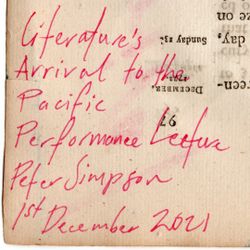 Literature's
Arrival to the
Pacific
Performance Lecture
Peter Simpson
1st December 2021
DECEMBER,
Sunday 23.
day,